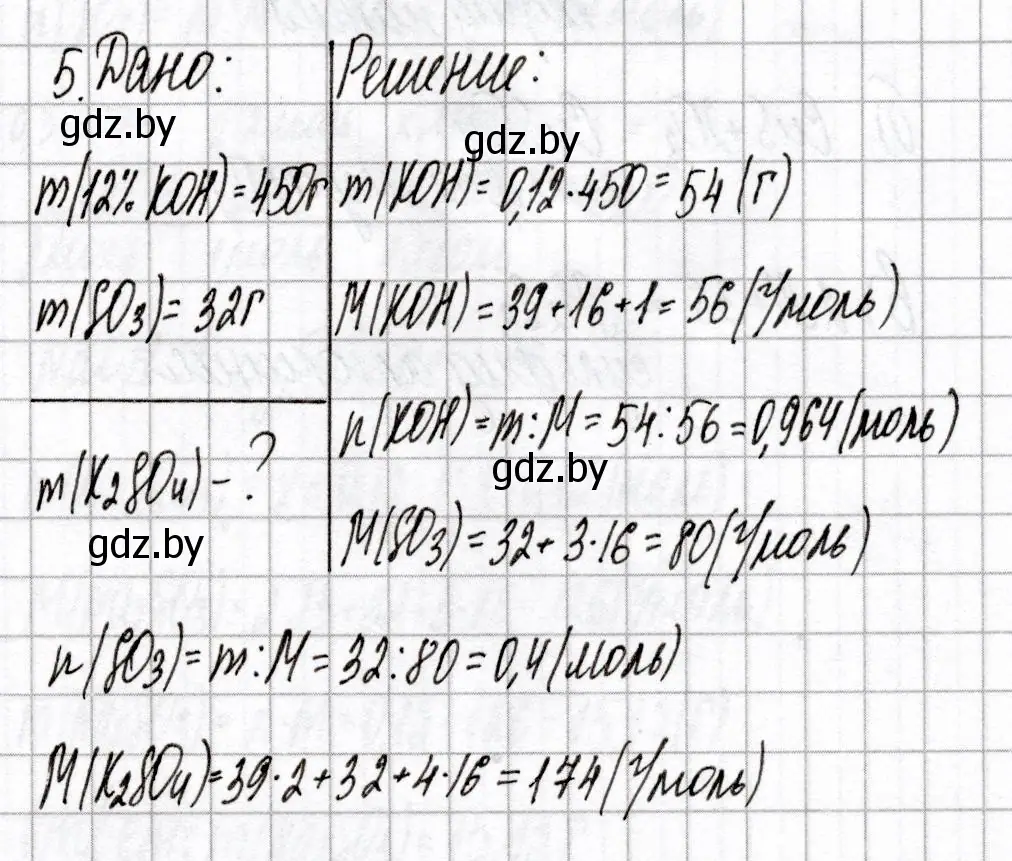 5. Дано:
gdz.by
m(12% KOH) = 450г
m(SO₃) = 32г
m(K₂SO₄) - ?
gdz.by
Решение:
gdz.by
m(KOH) = 0,12·450 = 54 (г)
M(KOH) = 39+16+1 = 56 (г/моль)
n(KOH) = m:M = 54:56 = 0,964 (моль)
gdz.by
M(SO₃) = 32 + 3·16 = 80 (г/моль)
n(SO₃) = m:M = 32:80 = 0,4 (моль)
M(K₂SO₄) = 39·2 + 32 + 4·16 = 174 (г/моль)